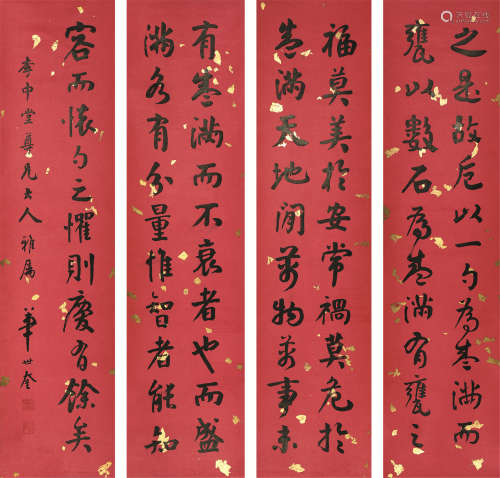 之是故卮以一勺為盛滿而
甕以數石為盛滿有甕之
福莫美於安常禍莫危於
盛滿天地間萬物萬事未
有盛滿而不衰者也而盛
滿各有分量惟智者能知
容而懷勺之懼則慶有餘矣
李中堂尊兄大人雅属 華世奎